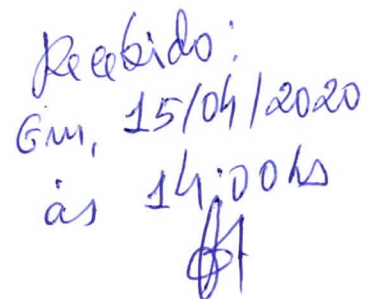 Recebido:
Em, 15/04/2020
às 14:00hs